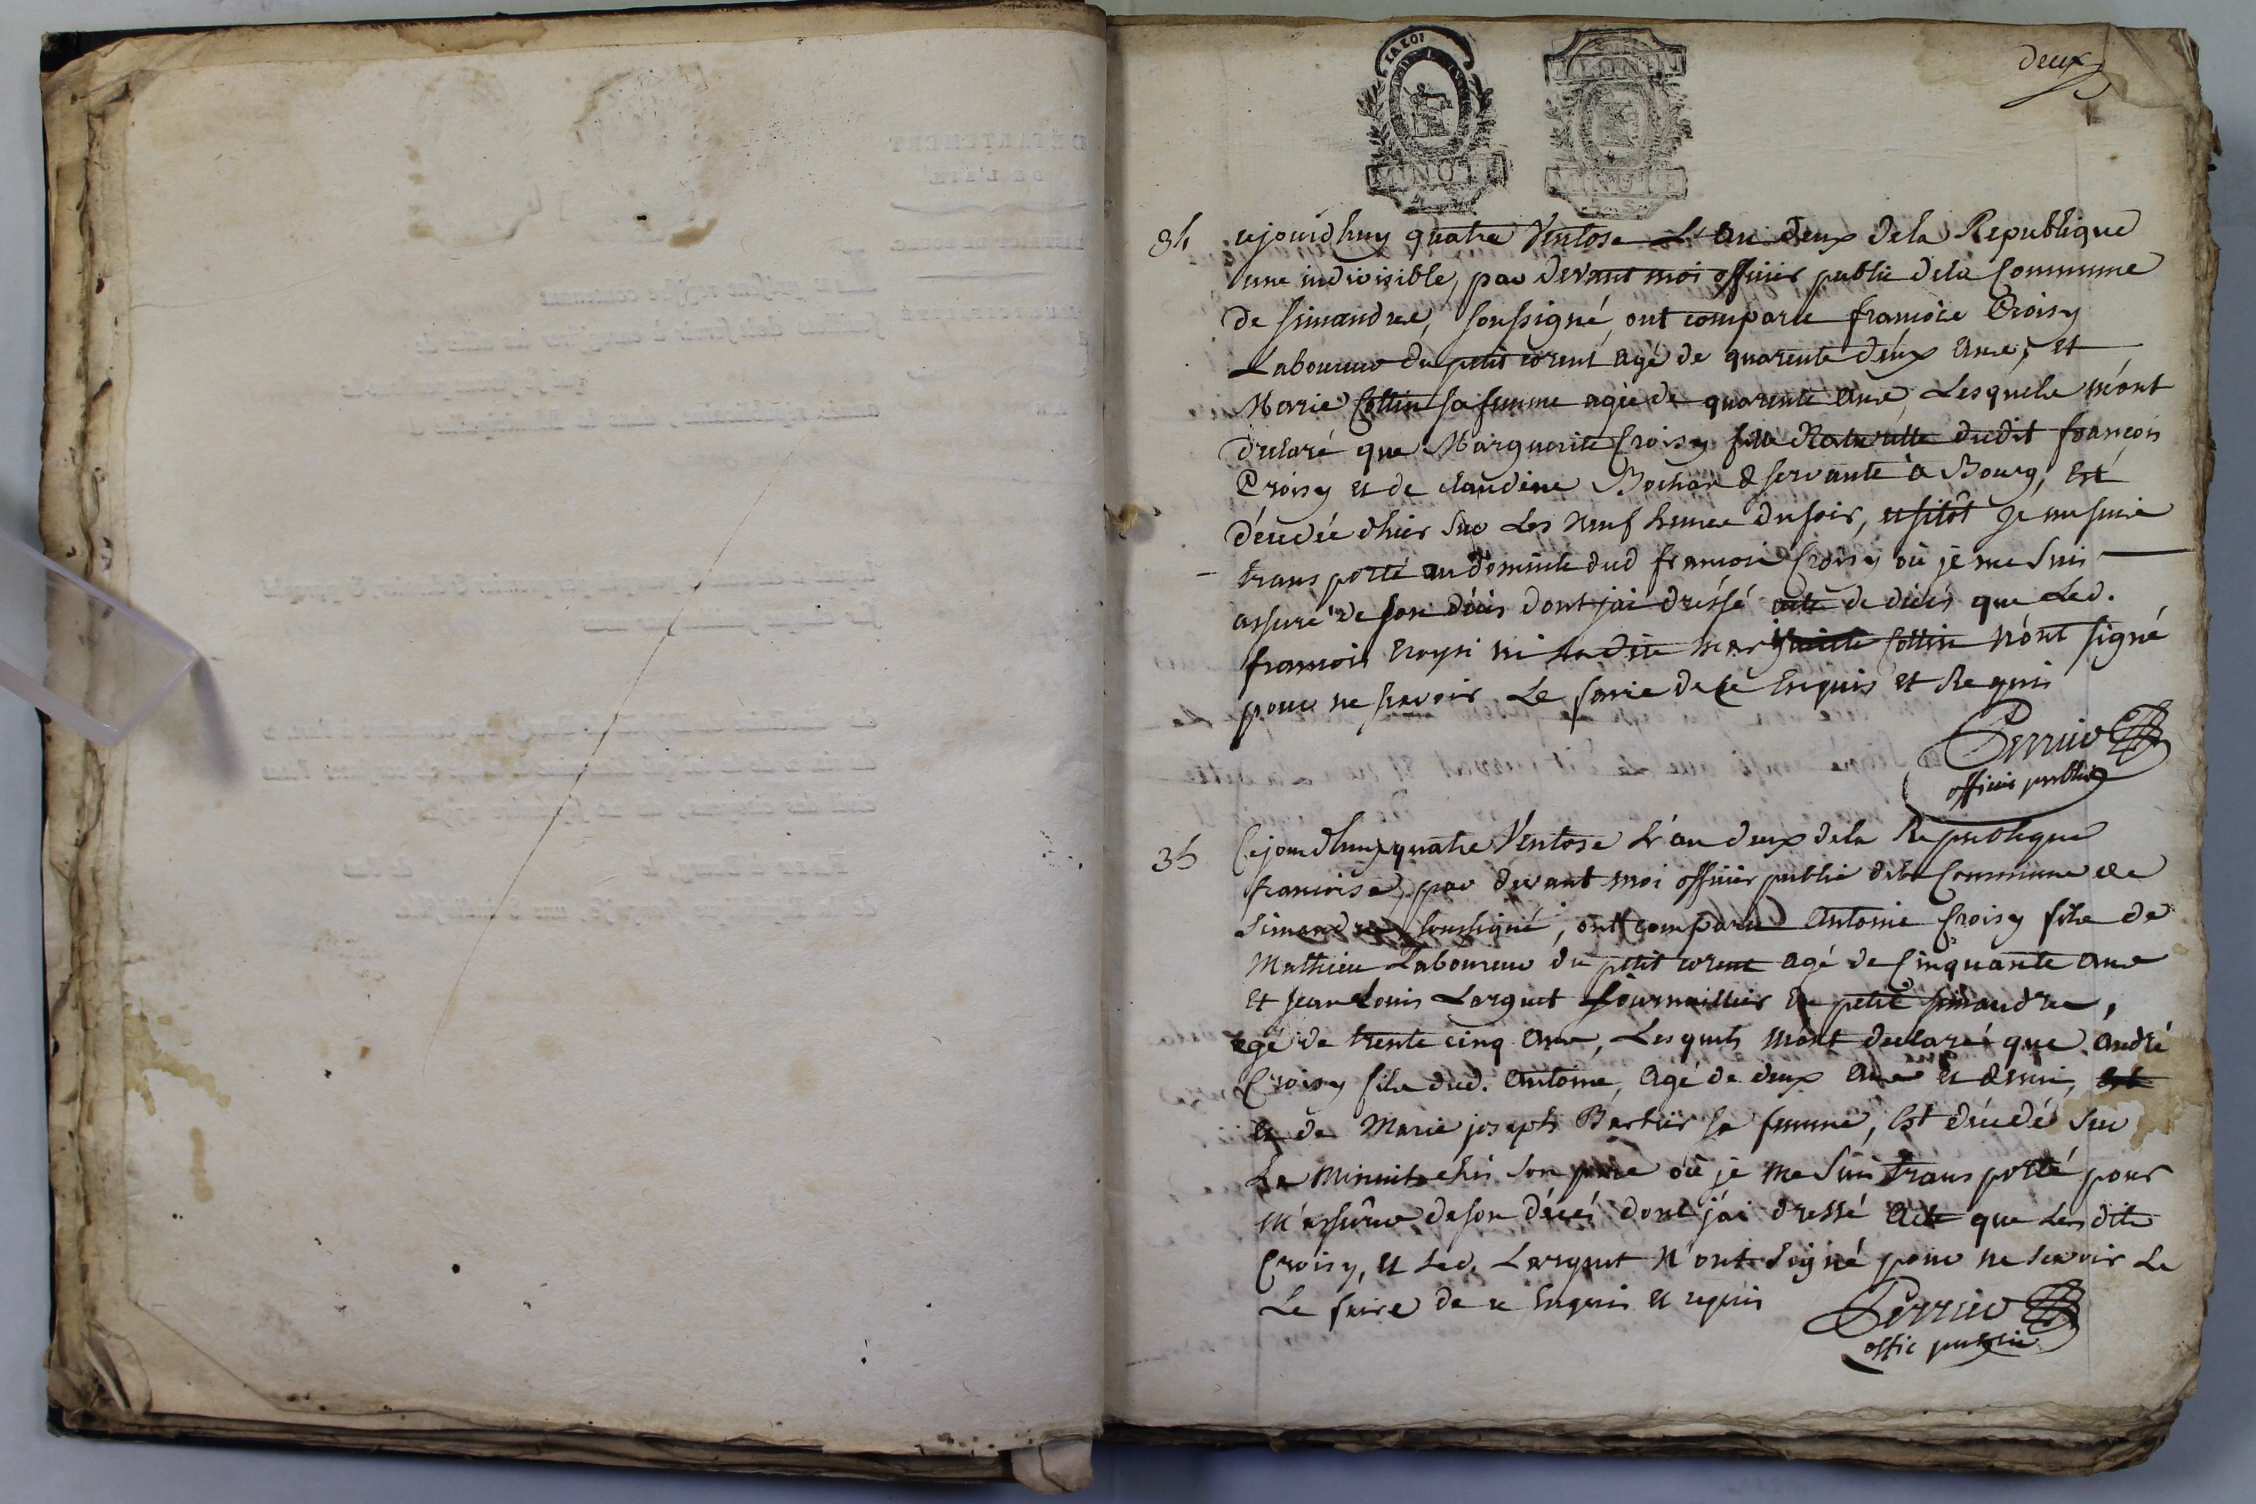 deux
LA LOI
MINUTE
MINUTE
34
ujourdhuy quatre Ventose L'an deux dela Republique
une indivisible, par devant moi officier public dela Commune
de Simandre, soussigné, ont comparu francois Croisy
Laboureur du petit corent agé de quarente deux ans, et
Marie Collin sa femme agée de quarente ans, Lesquels m'ont
declaré que Marguerite Croisy fille Naturelle dudit françois
Croisy et de claudine Bochard servante à Bourg, Est
décedée d'hier sur Les Neuf heures du soir, ausitôt je me suis
transporté au domicile dud francois Croisy où je me suis
assuré de son décès dont jai dréssé acte de décès que Led.
francois Croysi ni Ladite Collin N'ont signé
pour ne scavoir Le faire de ce Enquis et Requis
Perrier
officier public
35
Cejourdhuy quatre Ventose L'an deux dela Republique
francoise, par devant moi officier public dela Commune de
Simandre soussigné, ont comparu Antoine Croisy fils de
Mathieu Laboureur du petit corent agé de Cinquante ans
Et Jean Louis Larguet journaillier du petit simandre,
agé de trente cinq ans, Lesquels m'ont declaré que André
Croisy fils dud. Antoine, Agé de deux ans et demi, est
et de Marie joseph Barbier sa femme, Est décedé sur
Le Minuit chés son père où je me suis transporté pour
m'assûrer de son décès dont j'ai dressé Acte que Lesdits
Croisy, et Led. Larguet N'ont signé pour ne scavoir Le
Le faire de ce Enquis et requis
Perrier
offic public